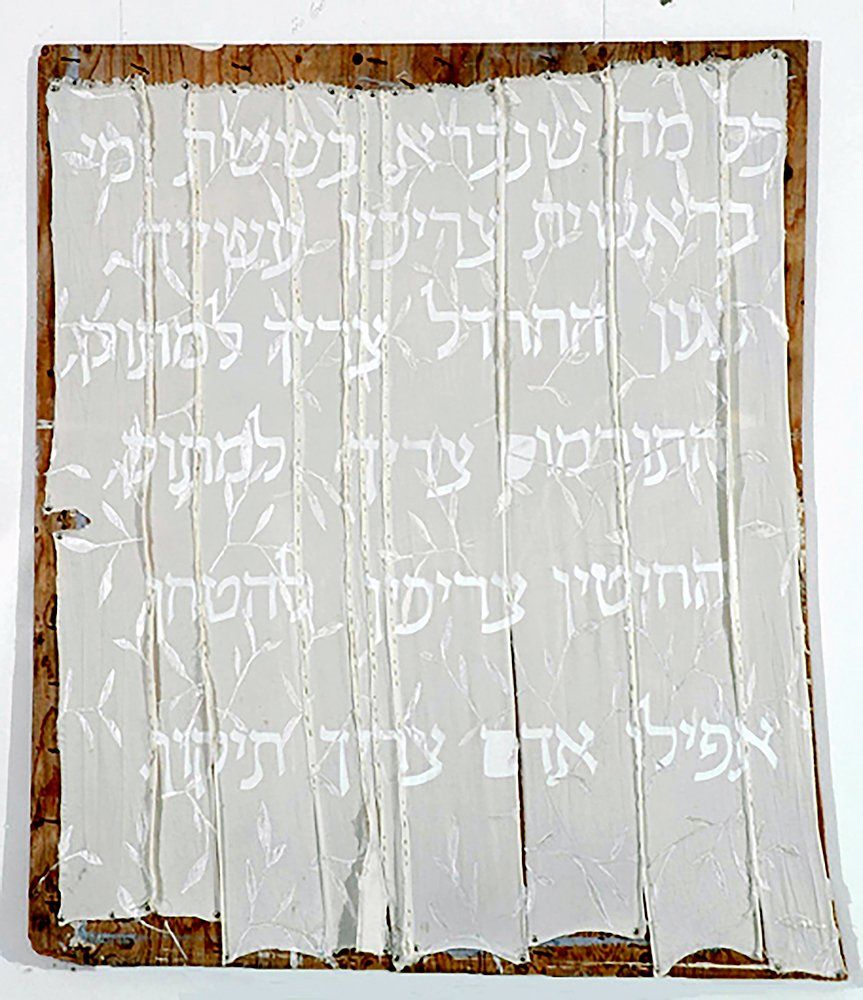 כל מה שנברא בששת ימי
בראשית צריכין עשייה
כגון החרדל צריך למתוק
התורמוס צריך למתוק
החיטין צריכין להטחן
אפילו אדם צריך תיקון